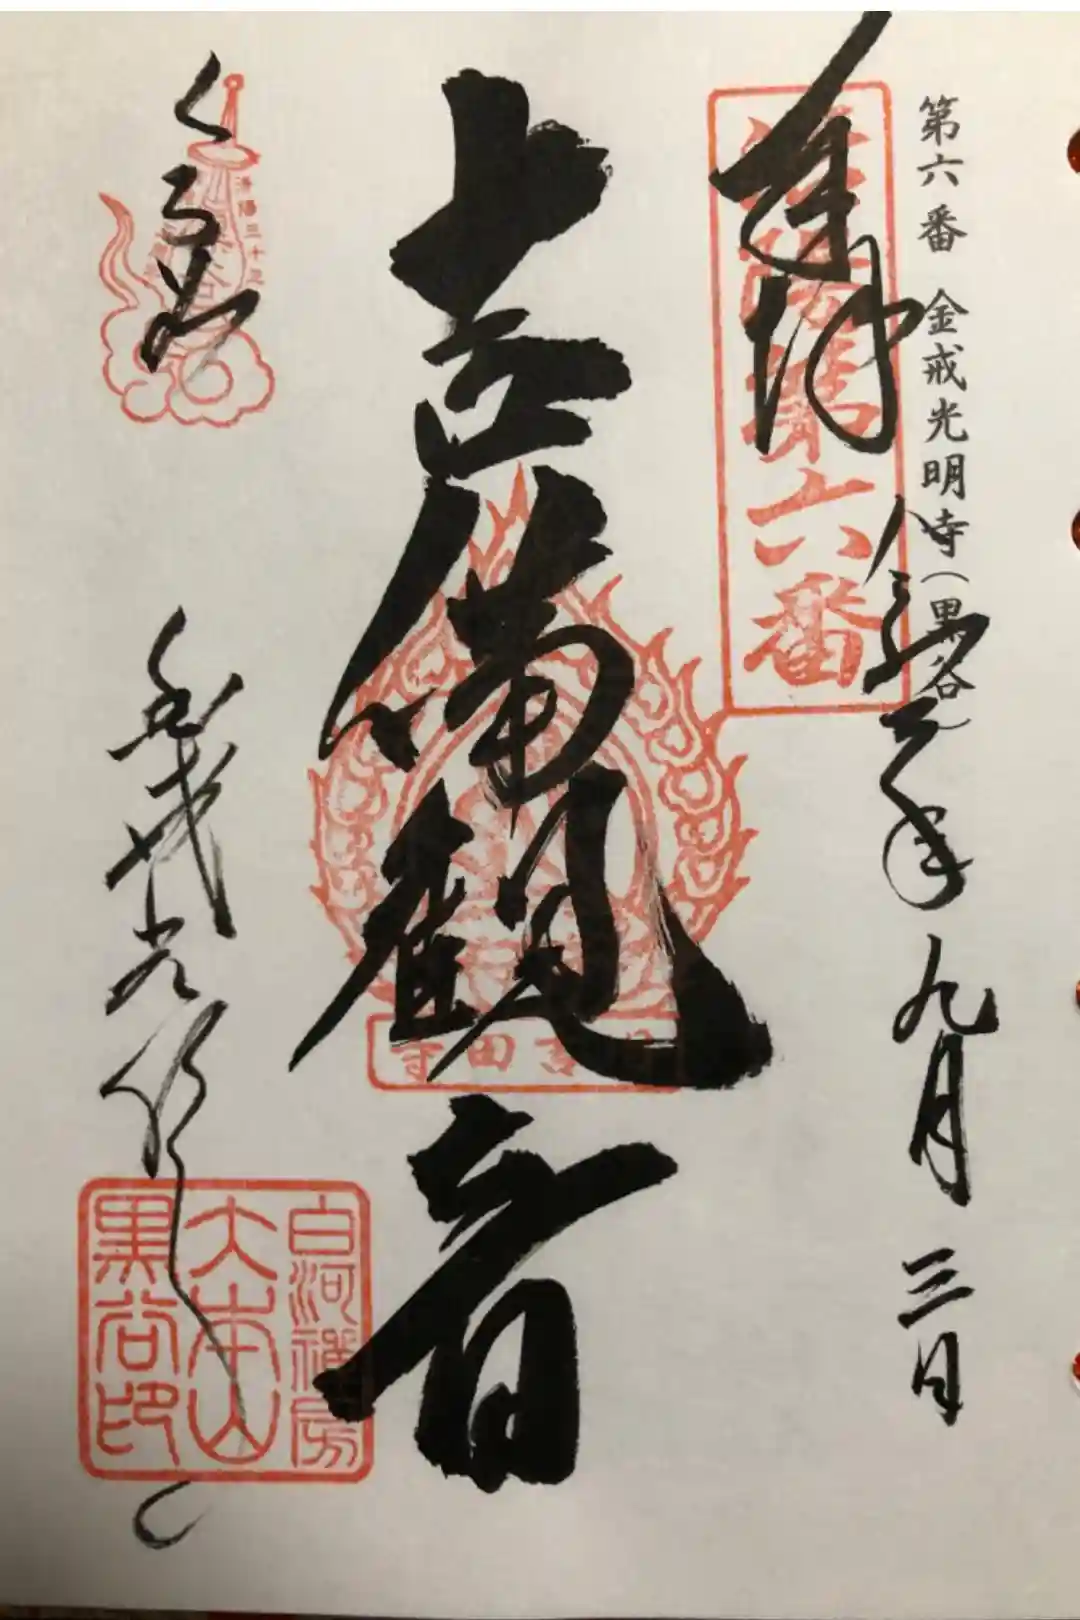 第六番 金戒光明寺(黒谷)
奉拝 令和三年九月三日
洛陽第六番
吉備観音
吉田寺
くろ谷
洛陽三十三
金戒光明寺
白河禅房
大本山
黒谷印